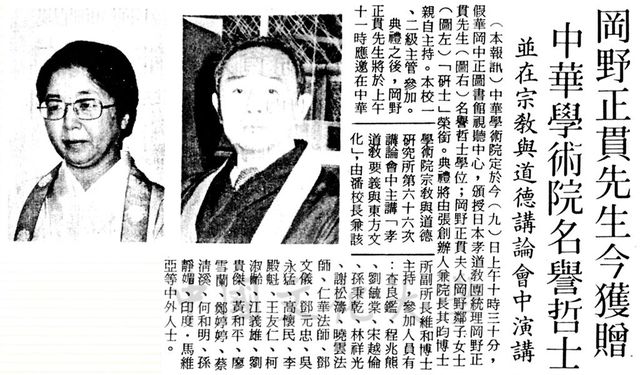 岡野正貫先生今獲贈
中華學術院名譽哲士
並在宗教與道德講論會中演講
（本報訊）中華學術院定於今（九）日上午十時三十分，
假華岡中正圖書館視聽中心，頒授日本孝道教團統理岡野正
貫先生（圖右）名譽哲士學位；岡野正貫夫人岡野鄰子女士
（圖左）「研士」榮銜。典禮將由張創辦人兼院長其昀博士
親自主持。本校一
、二級主管參加。
典禮之後，岡野
正貫先生將於上午
十一時應邀在中華
學術院宗教與道德
研究所第六十六次
講論會中主講「孝
道教要義與東方文
化」，由潘校長兼該
所副所長維和博士
主持。參加人員有
：查良鑑、程兆熊
、劉毓棠、宋越倫
、孫秉乾、林祥光
、謝松濤、曉雲法
師、仁華法師、鄧
文儀、鄧元忠、吳
永猛、高懷民、李
殿魁、王友仁、柯
淑齡、江義雄、劉
貴傑、黃和平、廖
雪蘭、鄭婷婷、蔡
清溪、何和明、孫
靜媚、印度·馬維
亞等中外人士。